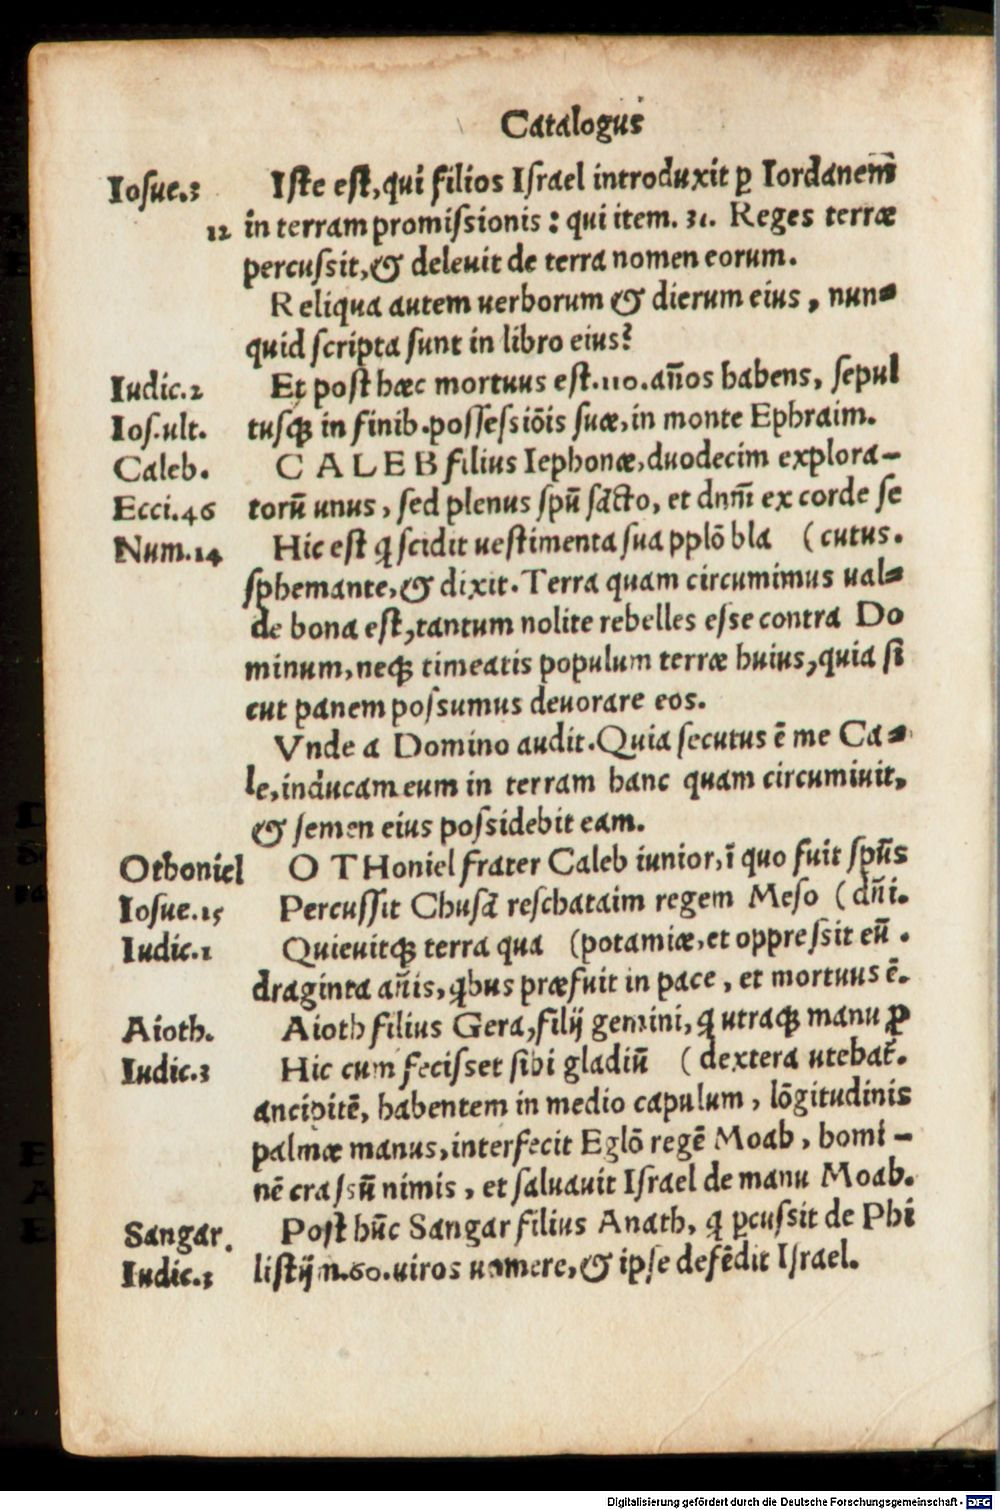 Catalogus
Iosue.3 Iste est, qui filios Israel introduxit ꝑ Iordanem
12 in terram promissionis: qui item. 31. Reges terræ
percussit, & deleuit de terra nomen eorum.
Reliqua autem uerborum & dierum eius, nun-
quid scripta sunt in libro eius?
Iudic.2 Et post hæc mortuus est.110.años habens, sepul
Ios.ult. tusq̃ in finib.possessiõis suæ, in monte Ephraim.
Caleb. CALEB filius Iephonæ, duodecim explora-
Ecci.46 torũ unus, sed plenus spũ sãcto, et dnm̃ ex corde se
Num.14 Hic est q̃ scidit uestimenta sua pplõ bla (cutus.
sphemante, & dixit. Terra quam circumimus ual-
de bona est, tantum nolite rebelles esse contra Do
minum, neq̃ timeatis populum terræ huius, quia si
cut panem possumus deuorare eos.
Vnde a Domino audit. Quia secutus ẽ me Ca-
le, inducam eum in terram hanc quam circumiuit,
& semen eius possidebit eam.
Othoniel OTHoniel frater Caleb iunior, ĩ quo fuit spũs
Iosue.15 Percussit Chusã reschataim regem Meso (dñi.
Iudic.1 Quieuitq̃ terra qua (potamiæ, et oppressit eũ.
draginta añis, q̃bus præfuit in pace, et mortuus ẽ.
Aioth. Aioth filius Gera, filij gemini, q̃ utraq̃ manu ꝓ
Iudic.3 Hic cum fecisset sibi gladiũ (dextera utebat̃.
ancipitẽ, habentem in medio capulum, lõgitudinis
palmæ manus, interfecit Eglõ regẽ Moab, homi-
nẽ crassũ nimis, et saluauit Israel de manu Moab.
Sangar. Post hũc Sangar filius Anath, q̃ ꝑcussit de Phi
Iudic.3 listijm.60.uiros uomere, & ipse defẽdit Israel.
Digitalisierung gefördert durch die Deutsche Forschungsgemeinschaft - DFG